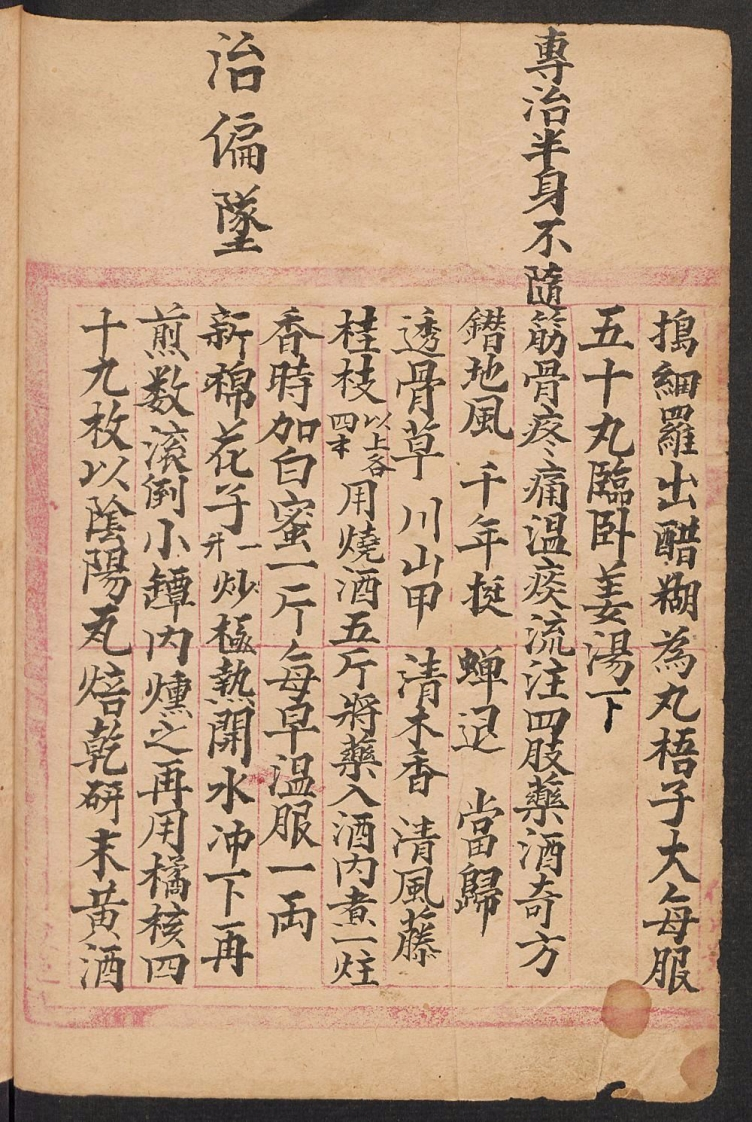 搗細羅出醋糊為丸梧子大每服
五十丸臨卧姜湯下
專治半身不隨筋骨疼痛温痰流注四肢藥酒奇方
鐕地風 千年挺 蝉退 當歸
透骨草 川山甲 清木香 清風藤
桂枝 以上各四本 用燒酒五斤將藥入酒内煮一炷
香時加白蜜一斤每早温服一両
治偏墜
新棉花子一升炒極熱開水冲下再
煎数滚倒小罈内燻之再用橘核四
十九枚以陰陽瓦焙乾研末黄酒